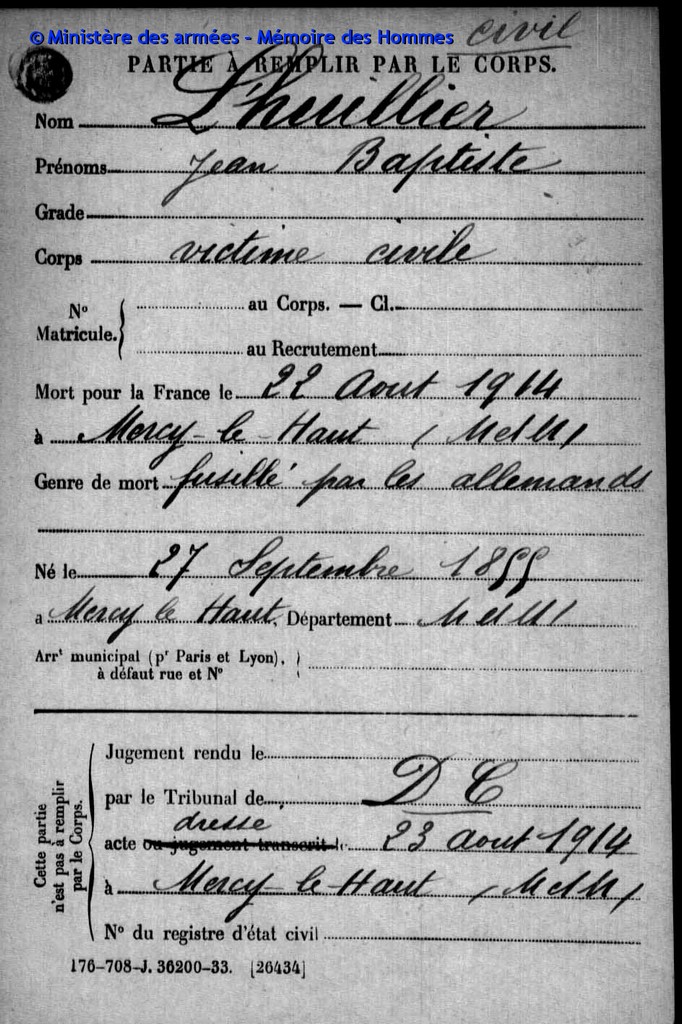 © Ministère des armées - Mémoire des Hommes
civil
PARTIE À REMPLIR PAR LE CORPS.
Nom Lhuillier
Prénoms Jean Baptiste
Grade
Corps victime civile
N° Matricule. au Corps. — Cl.
au Recrutement
Mort pour la France le 22 Aout 1914
à Mercy-le-Haut (MetM)
Genre de mort fusillé par les allemands
Né le 27 Septembre 1855
a Mercy le Haut, Département MetM
Arrt municipal (pr Paris et Lyon),
à défaut rue et N°
Cette partie n'est pas à remplir par le Corps.
Jugement rendu le
par le Tribunal de D C
dresse
acte ou jugement transcrit le 23 aout 1914
à Mercy-le-Haut (MetM)
N° du registre d'état civil
176-708-J. 36200-33. [26434]